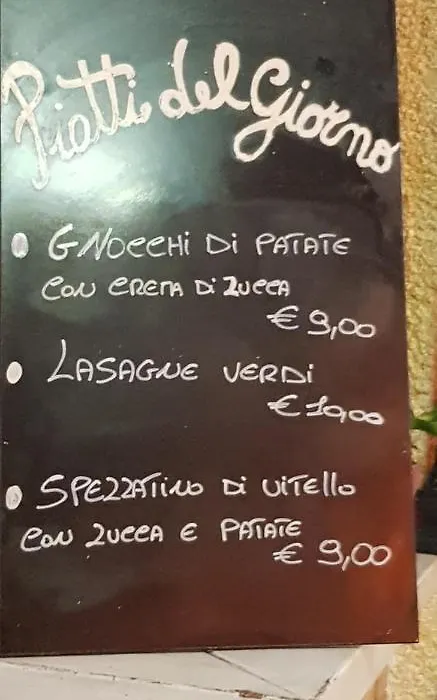 Piatti del Giorno
GNOCCHI Di PATATE
CON CREMA Di ZUCCA
€ 9,00
LASAGNE VERDi
€ 10,00
SPEZZATINO Di ViTELLO
CON ZUCCA E PATATE
€ 9,00